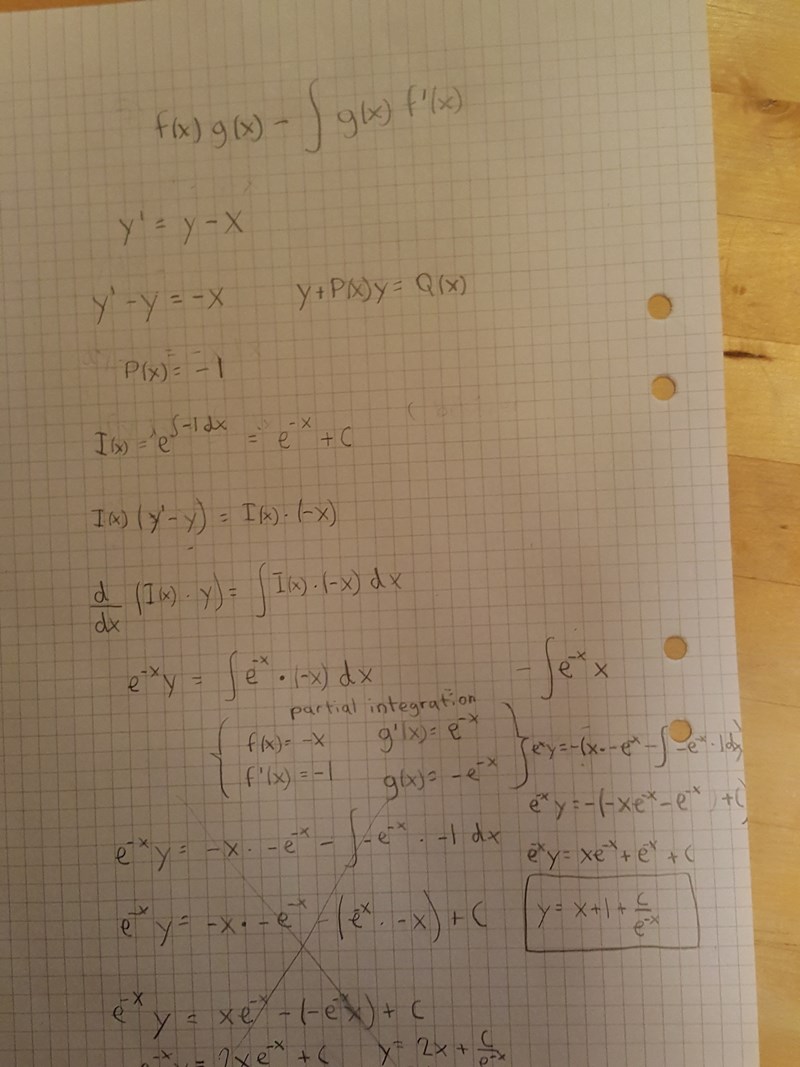 f(x) g(x) - ∫ g(x) f'(x)
y' = y - x
y' - y = -x    y + P(x)y = Q(x)
P(x) = -1
I(x) = e^{∫-1 dx} = e^{-x} + C
I(x) (y' - y) = I(x) · (-x)
d/dx (I(x) · y) = ∫ I(x) · (-x) dx
e^{-x} y = ∫ e^{-x} · (-x) dx    - ∫ e^{-x} x
partial integration
f(x) = -x    g'(x) = e^{-x}
f'(x) = -1    g(x) = -e^{-x}
e^{-x} y = -x · -e^{-x} - ∫ -e^{-x} · -1 dx
e^{-x} y = -x · -e^{-x} - (e^{-x} · -x) + C
e^{-x} y = xe^{-x} - (-e^{-x} x) + C
e^{-x} y = 2xe^{-x} + C    y = 2x + C/e^{-x}
e^{-x} y = -(x · -e^{-x} - ∫ -e^{-x} · 1 dx)
e^{-x} y = -(-xe^{-x} - e^{-x}) + C
e^{-x} y = xe^{-x} + e^{-x} + C
y = x + 1 + C/e^{-x}